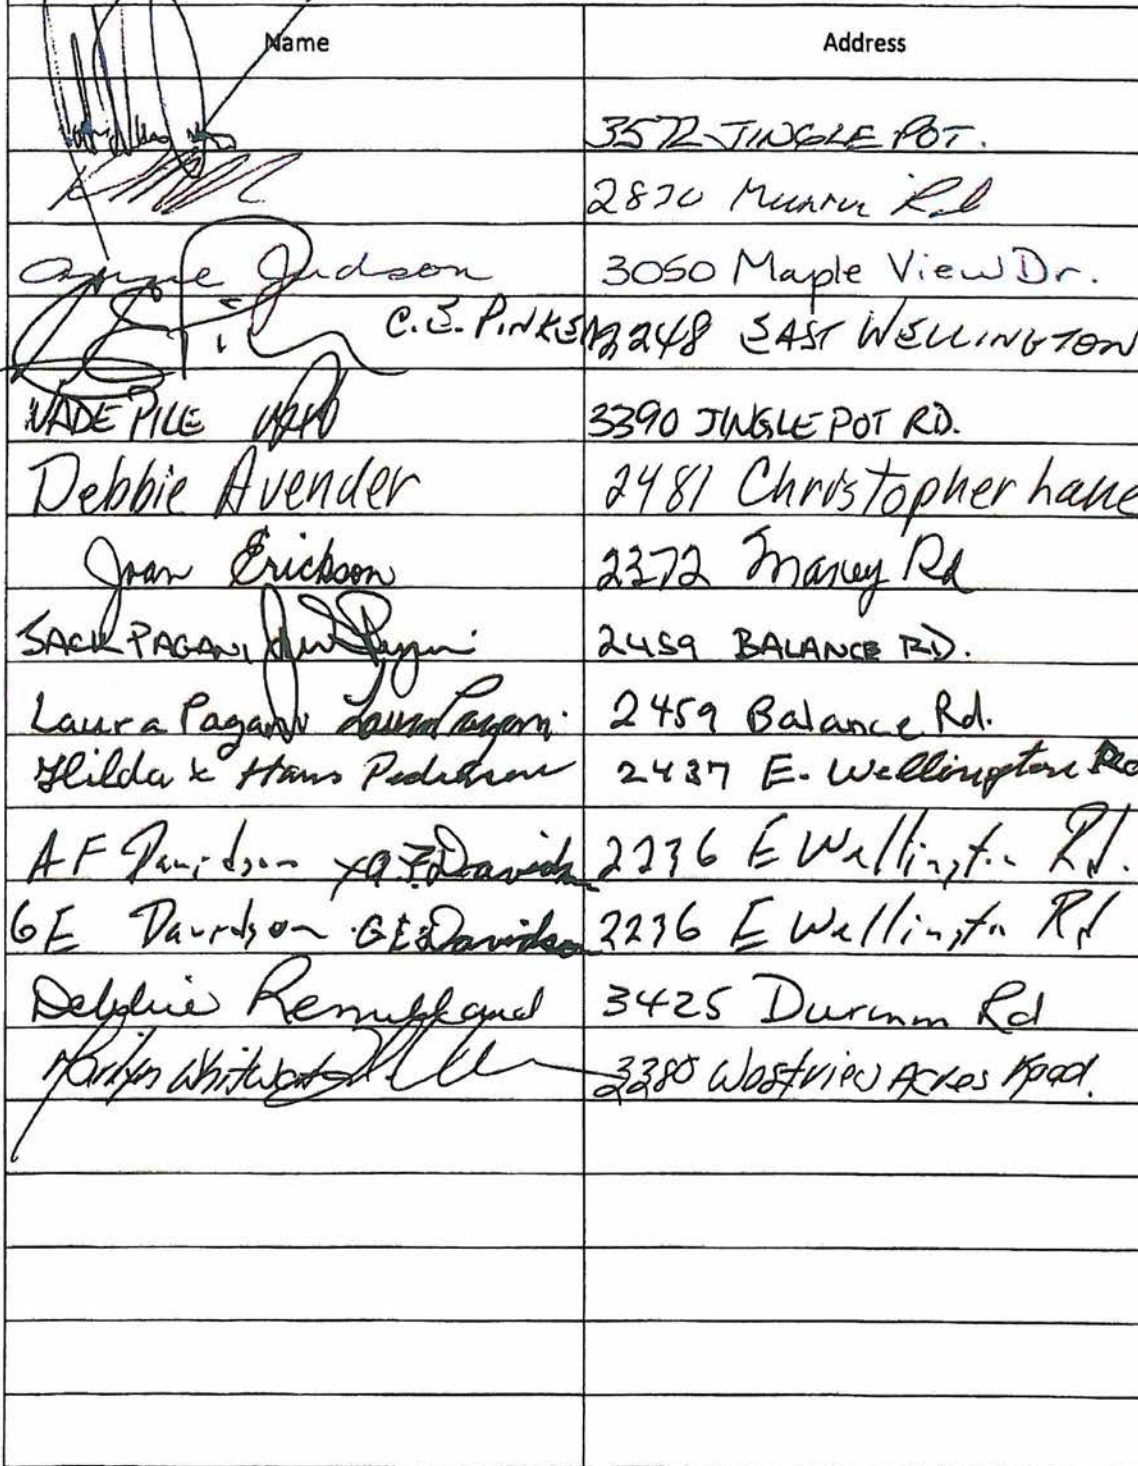 Name Address
3572 JINGLE POT.
2870 Rd
Judson 3050 Maple View Dr.
C.E. PINKE 2248 EAST WELLINGTON
WADE PILE 3390 JINGLE POT RD.
Debbie Avender 2481 Christopher Lane
Joan Erickson 2372 Rd
JACK PAGANI 2459 BALANCE RD.
Laura Pagani Laura Pagani 2459 Balance Rd.
Hilda & Hans Pedersen 2437 E. Wellington
AF Davidson A.F. Davidson 2236 E Wellington Rd.
GE Davidson GE Davidson 2236 E Wellington Rd
Debbie 3425 Rd
Marilyn 3380 Westview Acres Road.